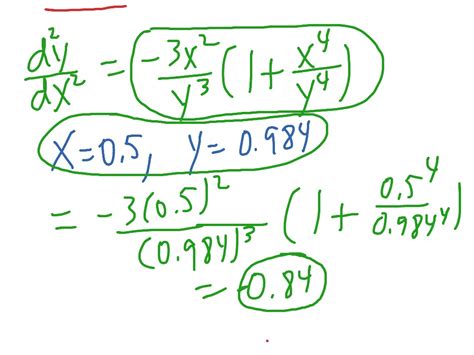 d²y/dx² = -3x²/y³ (1 + x⁴/y⁴)
x=0.5, y=0.984
= -3(0.5)²/(0.984)³ (1 + 0.5⁴/0.984⁴)
= -0.84